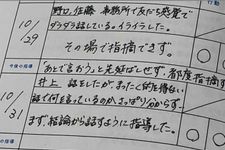 行動
野口、佐藤 事務所で友だち感覚で
10/29
ダラダラ話している。イライラした。
その場で指摘できず。
今後の指導
「あとで言おう」と先延ばしせず、都度指摘す
10/31
井上 話をしたが、まったく的を得ない
話で何を言っているのか、さっぱり分からず。
まず、結論から話すように指導した。